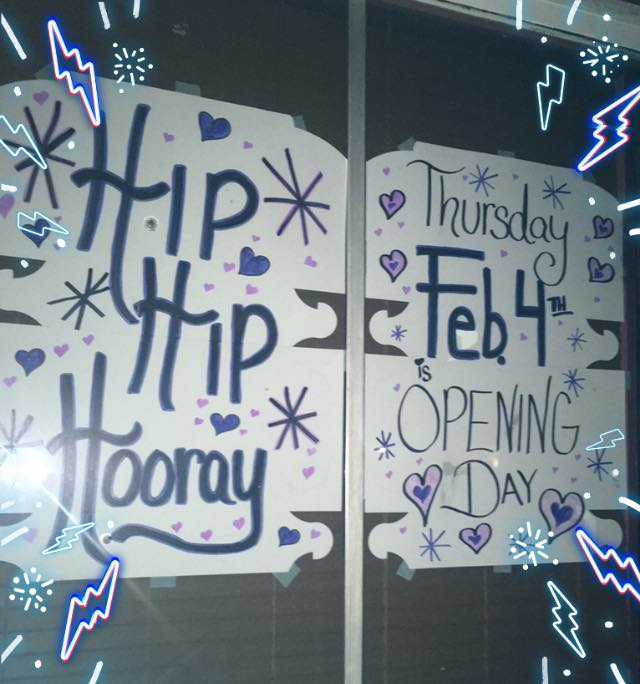 Hip
Hip
Hooray
Thursday
Feb. 4TH
is
OPENING
DAY